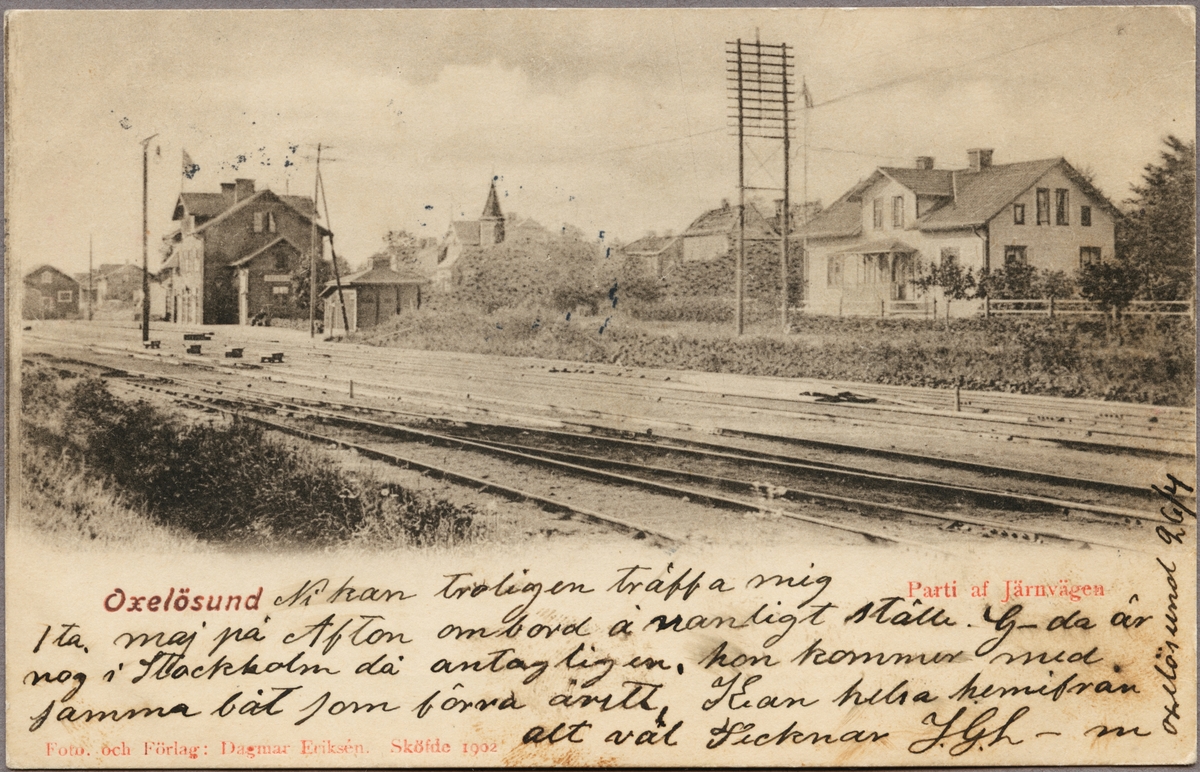 Oxelösund Ni kan troligen träffa mig
Parti af Järnvägen
1ta. maj på Afton ombord å vanligt ställe. G-da är
nog i Stockholm då antagligen, hon kommer med
samma båt som förra året. Kan helsa hemifrån
alt väl Tecknar J.G.h - m
Foto. och Förlag: Dagmar Eriksén. Sköfde 1902
oxelösund 26/4